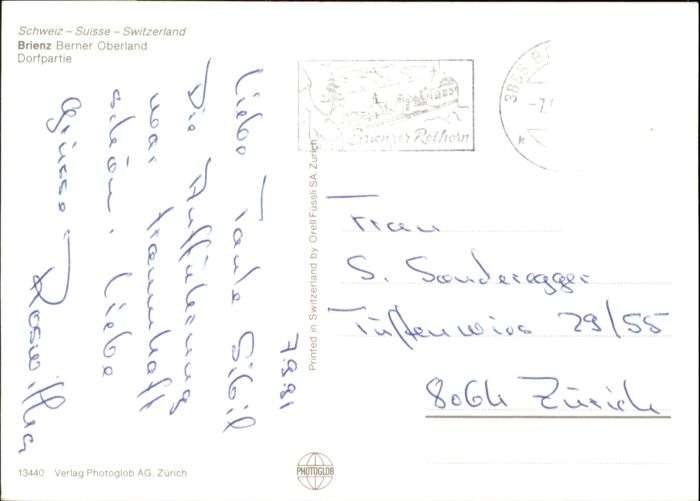 Schweiz – Suisse – Switzerland
Brienz Berner Oberland
Dorfpartie
7.9.81
Liebe Tante Sibil
Die Aufführung
war traumhaft
schön. Liebe
Grüsse
Roswitha
Brienzer Rothorn
3855 B
-7.
Printed in Switzerland by Orell Füssli SA, Zürich
Frau
S. Sonderegger
Tüffenwies 29/55
8064 Zürich
13440 Verlag Photoglob AG, Zürich
PHOTOGLOB